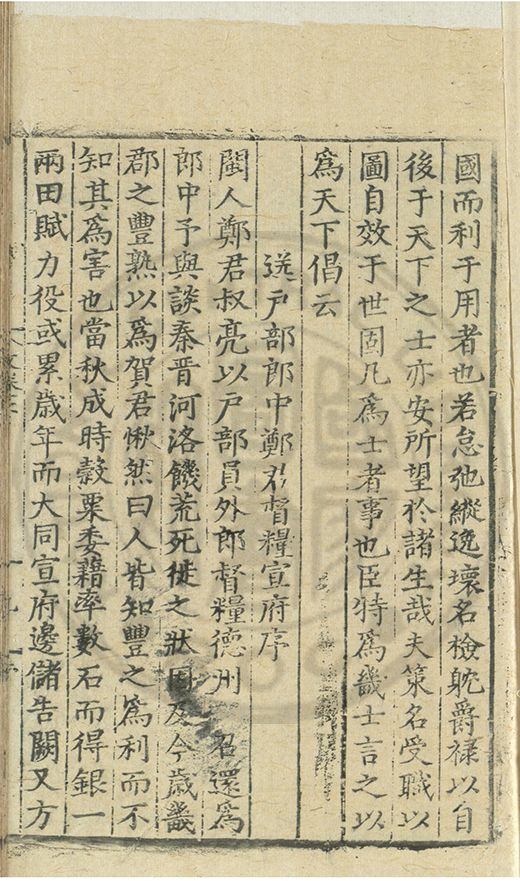 國而利于用者也若怠弛縱逸壞名檢躭爵祿以自
後于天下之士亦安所望於諸生哉夫策名受職以
圖自效于世固凡爲士者事也臣特爲畿士言之以
爲天下倡云
送戸部郎中鄭君督糧宣府序
閩人鄭君叔亮以戸部員外郎督糧德州 召還爲
郎中予與談秦晋河洛饑荒死徙之狀因及今歲畿
郡之豐熟以爲賀君愀然曰人皆知豐之爲利而不
知其爲害也當秋成時穀粟委藉率數石而得銀一
兩田賦力役或累歲年而大同宣府邊儲告闕又方